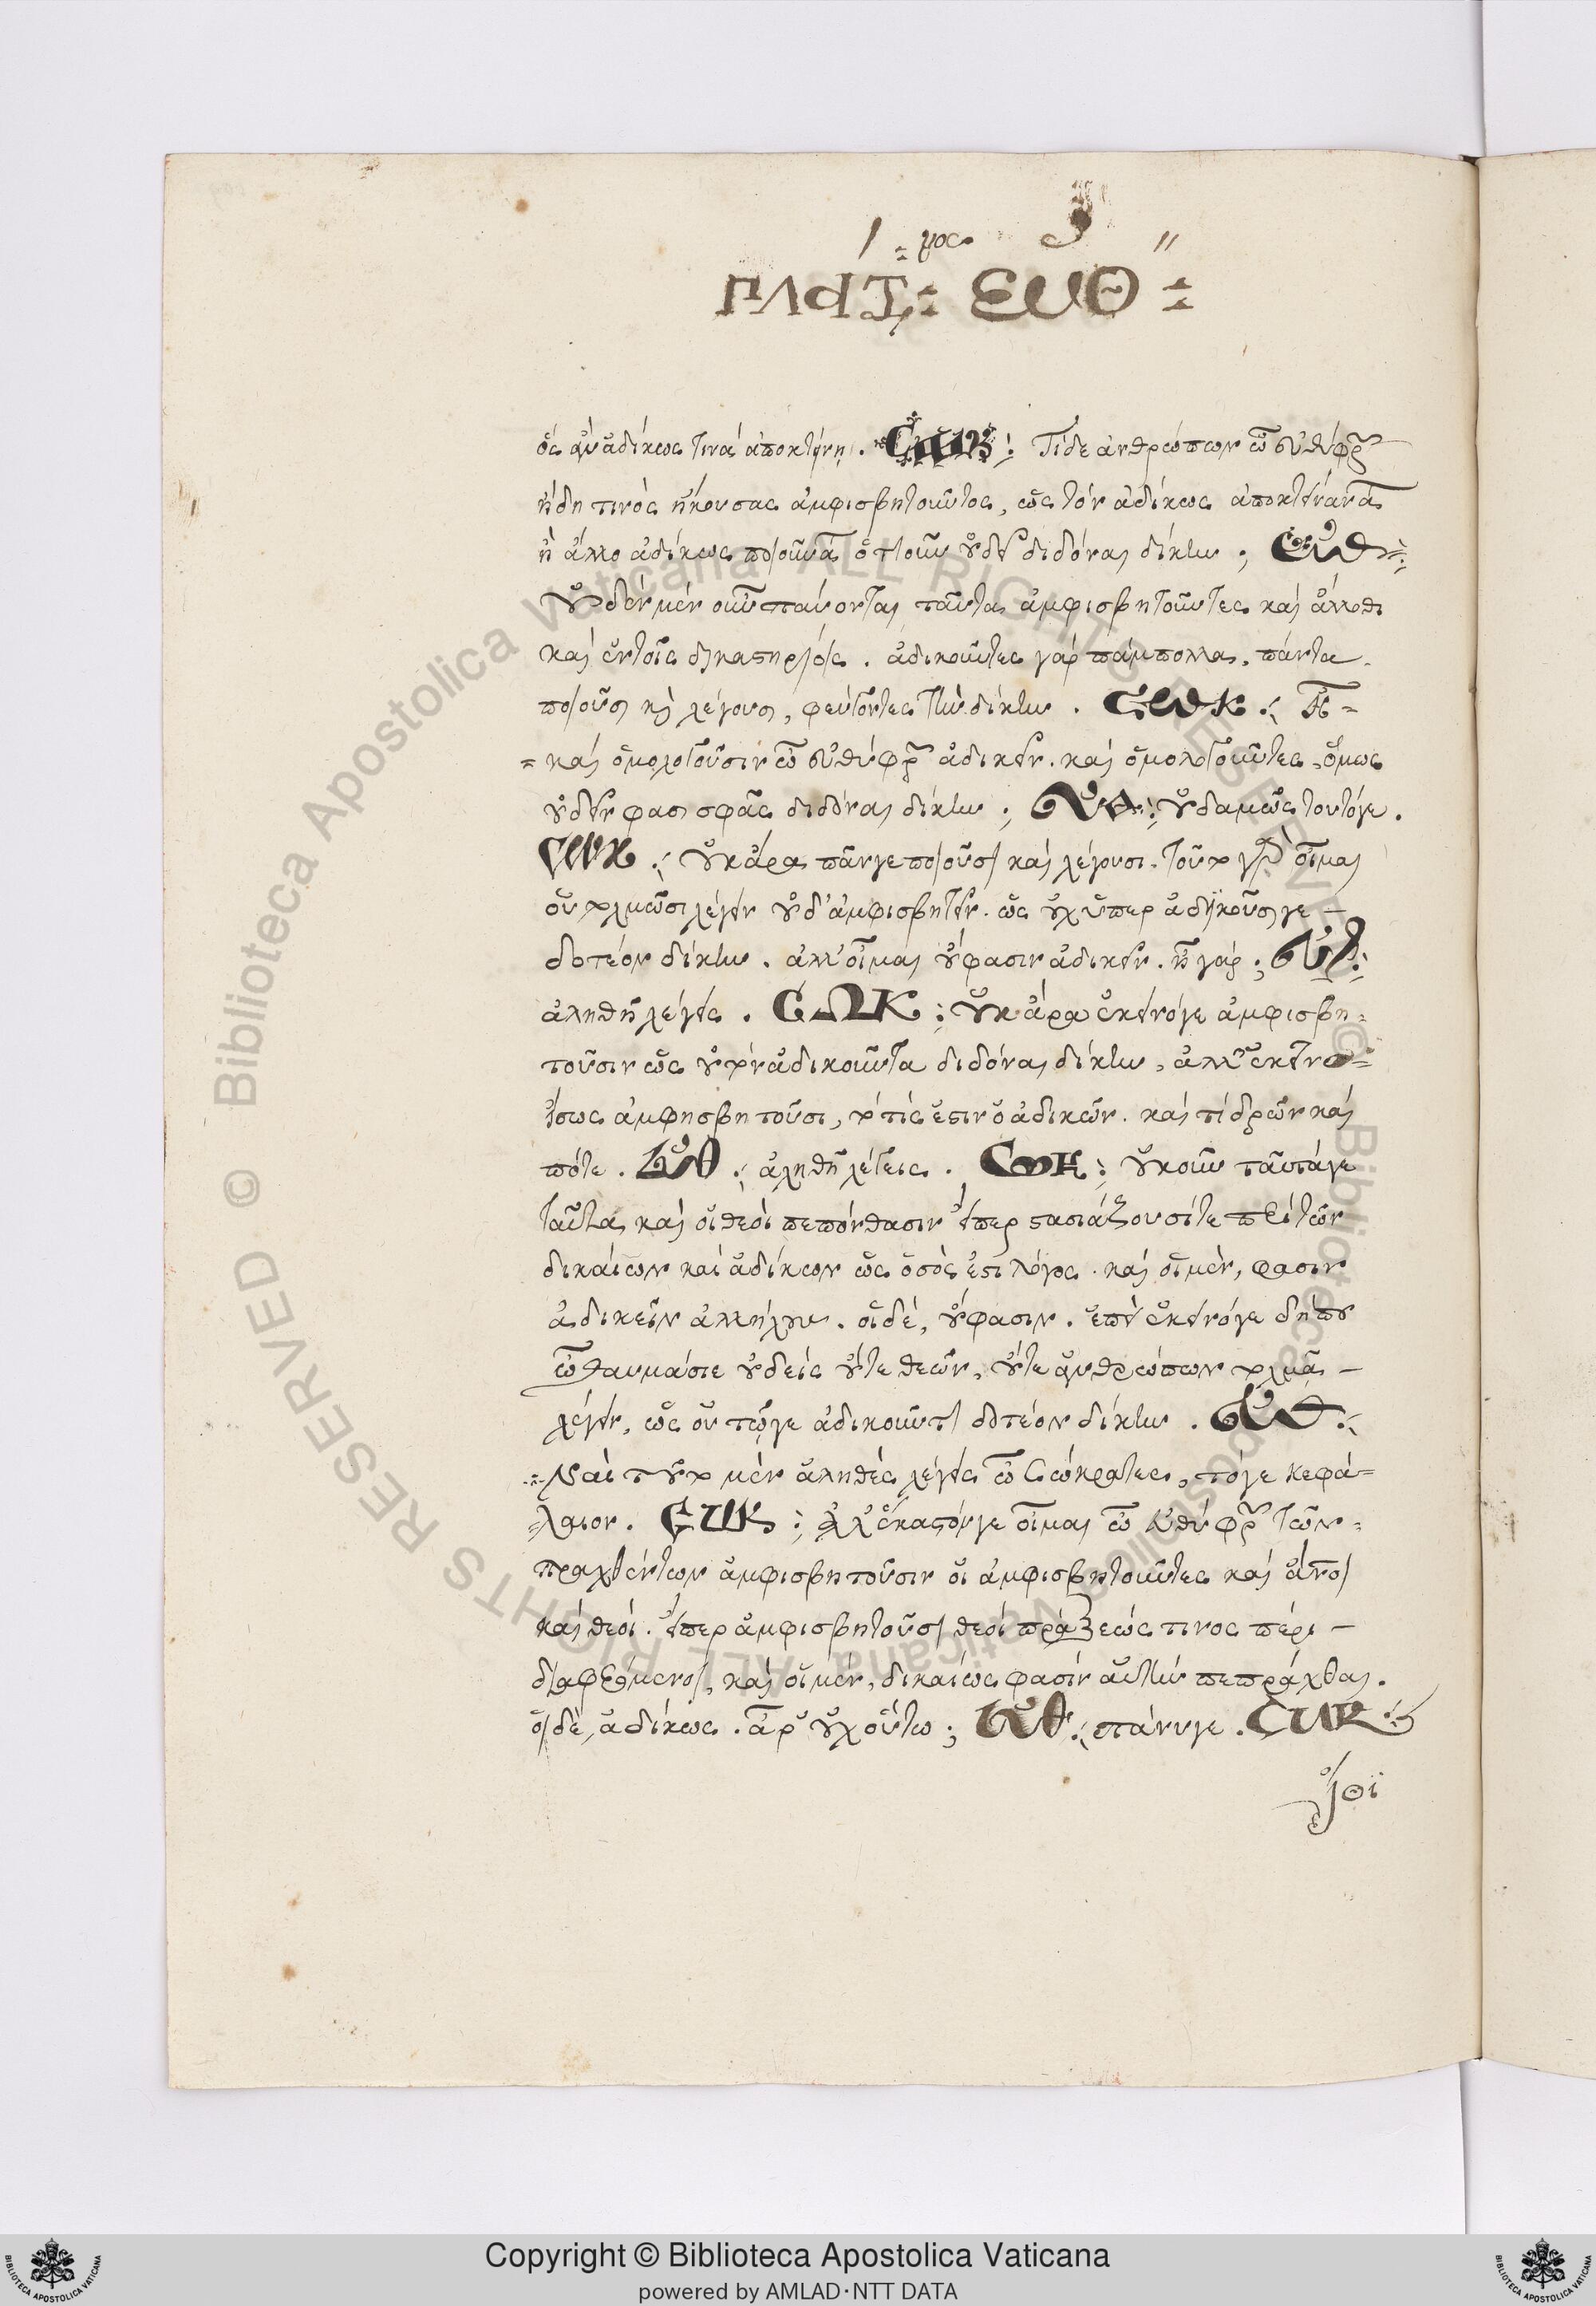 μος
ΠΛΑΤ: ΕΥΘ
ὃς ἂν ἀδίκως τινά ἀποκτείνη. ΣΩΚ: Τί δε ἀνθρώπων ὦ εὐθύφρ
ἤδη τινὸς ἤκουσας ἀμφισβητοῦντος, ὡς τὸν ἀδίκως ἀποκτείναντα
ἢ ἄλλο ἀδίκως ποιοῦντα ὁτιοῦν οὐ δεῖ διδόναι δίκην; ΕΥΘ:
Οὐδὲν μὲν οὖν παύονται ταῦτα ἀμφισβητοῦντες καὶ ἄλλοθι
καὶ ἐν τοῖς δικαστηρίοις. ἀδικοῦντες γὰρ πάμπολλα, πάντα
ποιοῦσι καὶ λέγουσι, φεύγοντες τὴν δίκην. ΣΩΚ: Ἦ=
=καὶ ὁμολογοῦσιν ὦ εὐθύφρ ἀδικεῖν. καὶ ὁμολογοῦντες, ὅμως
οὐ δεῖν φασι σφᾶς διδόναι δίκην; ΕΥΘ: οὐδαμῶς τοῦτόγε.
ΣΩΚ: οὐκ ἄρα πᾶν γε ποιοῦσι καὶ λέγουσι. τοῦτο γὰρ οἶμαι
οὐ τολμῶσι λέγειν οὐδ' ἀμφισβητεῖν. ὡς οὐχ εἴπερ ἀδικοῦσι γε –
δοτέον δίκην. ἀλλ' οἶμαι οὔ φασιν ἀδικεῖν. ἦ γάρ; ΕΥΘ:
ἀληθῆ λέγεις. ΣΩΚ: Οὐκ ἄρα ἐκεῖνόγε ἀμφισβη=
τοῦσιν ὡς οὐ τὸν ἀδικοῦντα διδόναι δίκην, ἀλλ' ἐκεῖνο=
ἴσως ἀμφησβητοῦσι, τὸ τίς ἐστιν ὁ ἀδικῶν. καὶ τί δρῶν καὶ
πότε. ΕΥΘ: ἀληθῆ λέγεις. ΣΩΚ: οὐκοῦν ταῦτάγε
ταῦτα καὶ οἱ θεοὶ πεπόνθασιν εἴπερ στασιάζουσί τε περὶ τῶν
δικαίων καὶ ἀδίκων ὡς ὁ σὸς ἐστι λόγος. καὶ οἱ μὲν, φασιν
ἀδικεῖν ἀλλήλους. οἱ δὲ, οὔ φασιν. ἐπεὶ ἐκεῖνόγε δήπου
ὦ θαυμάσιε οὐδεὶς οὔτε θεῶν, οὔτε ἀνθρώπων τολμᾶ –
λέγειν, ὡς οὐ τῷγε ἀδικοῦντι δοτέον δίκην. ΕΥΘ:
Ναὶ τοῦτο μὲν ἀληθὲς λέγεις ὦ Σώκρατες, τόγε κεφά=
=λαιον. ΣΩΚ: ἀλλ' ἕκαστόνγε οἶμαι ὦ εὐθύφρ τῶν=
πραχθέντων ἀμφισβητοῦσιν οἱ ἀμφισβητοῦντες καὶ ἄνοι
καὶ θεοί. εἴπερ ἀμφισβητοῦσι θεοί πράξεώς τινος πέρι –
διαφερόμενοι, καὶ οἱ μὲν, δικαίως φασὶν αὐτὴν πεπράχθαι.
οἱ δὲ, ἀδίκως. ἆρ' οὐχ οὕτω; ΕΥΘ: πάνυγε. ΣΩΚ:
ἴθι